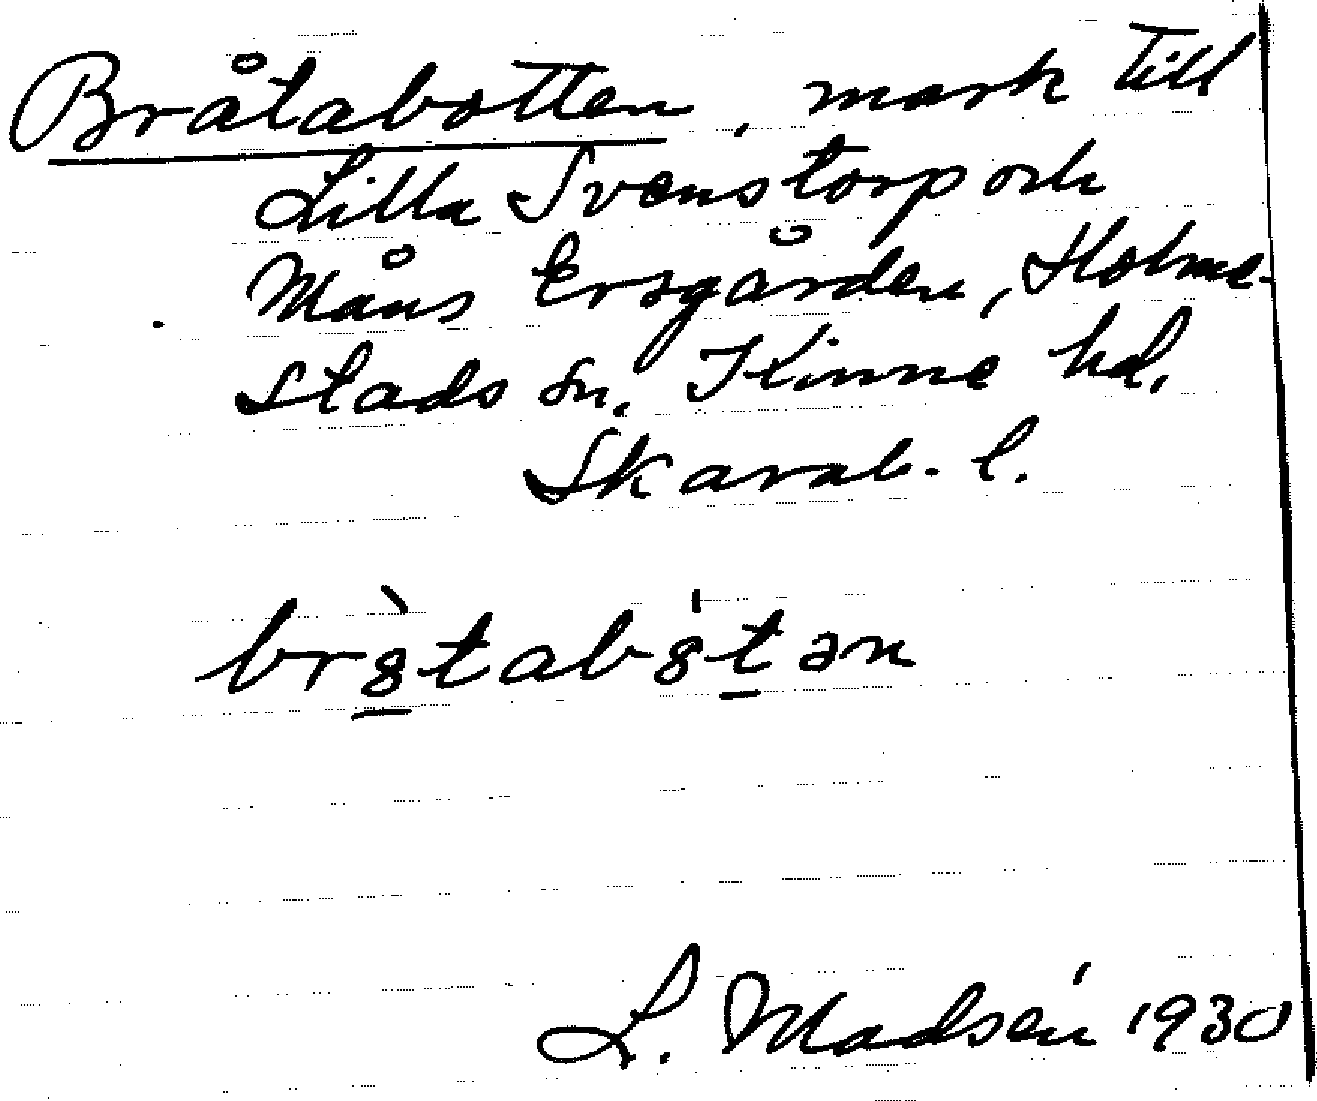 Bråtabotten, mark till
Lilla Svenstorp och
Måns Ersgården, Holme-
stads sn. Kinne hd,
Skarab. l.
brȣ̀tabȣ́tən
L. Madsén 1930